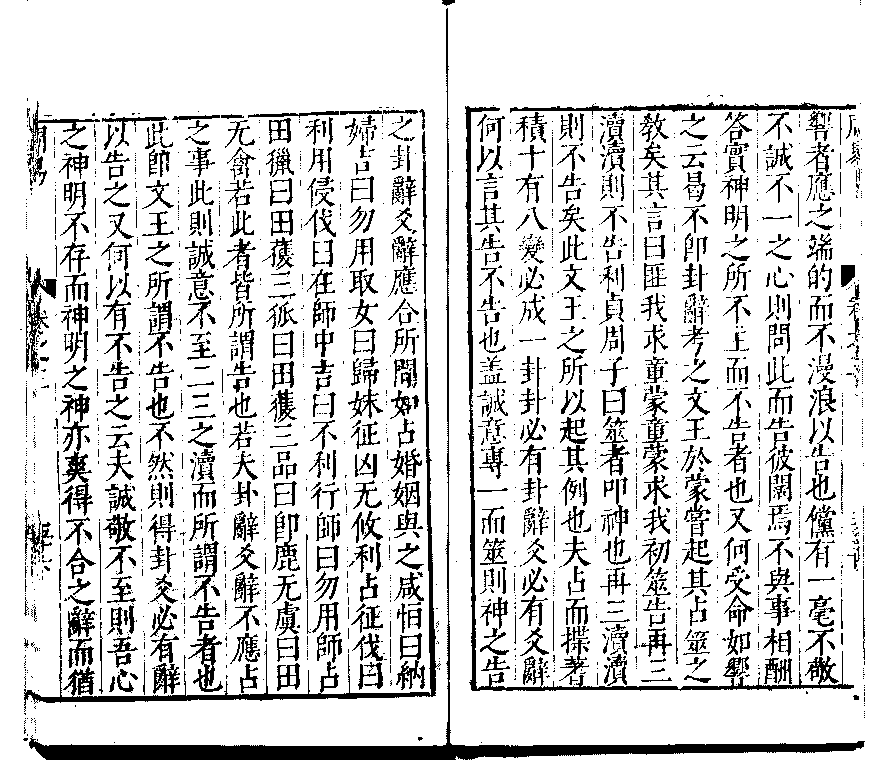 響者應之端的而不漫浪以告也儻有一毫不敬
不誠不一之心則問此而告彼闊焉不與事相酬
答實神明之所不主而不告者也又何受命如響
之云曷不卽卦辭考之文王於蒙嘗起其占筮之
敎矣其言曰匪我求童蒙童蒙求我初筮告再三
瀆瀆則不告利貞周子曰筮者叩神也再三瀆瀆
則不告矣此文王之所以起其例也夫占而揲蓍
積十有八變必成一卦卦必有卦辭爻必有爻辭
何以言其告不告也蓋誠意專一而筮則神之告
之卦辭爻辭應合所問如占婚姻與之咸恒曰納
婦吉曰勿用取女曰歸妹征凶无攸利占征伐曰
利用侵伐曰在師中吉曰不利行師曰勿用師占
田獵曰田獲三狐曰田獲三品曰卽鹿无虞曰田
无禽若此者皆所謂告也若夫卦辭爻辭不應占
之事此則誠意不至二三之瀆而所謂不告者也
此卽文王之所謂不告也不然則得卦爻必有辭
以告之又何以有不告之云夫誠敬不至則吾心
之神明不存而神明之神亦爽得不合之辭而猶